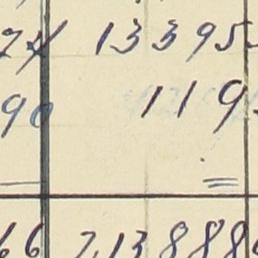 24 13395
90 119
66 213888